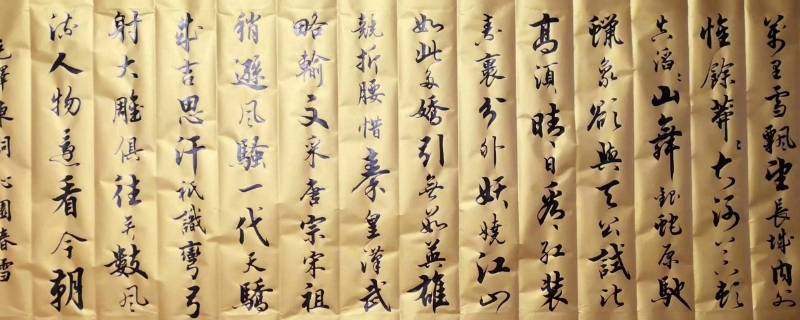 萬里雪飄望長城內外
惟餘莽〻大河上下頓
失滔〻山舞銀蛇原馳
蠟象欲與天公試比
高須晴日看紅裝
素裹分外妖嬈江山
如此多嬌引無數英雄
競折腰惜秦皇漢武
略輸文采唐宗宋祖
稍遜風騷一代天驕
成吉思汗祇識彎弓
射大雕俱往矣數風
流人物還看今朝
毛澤東詞沁園春雪